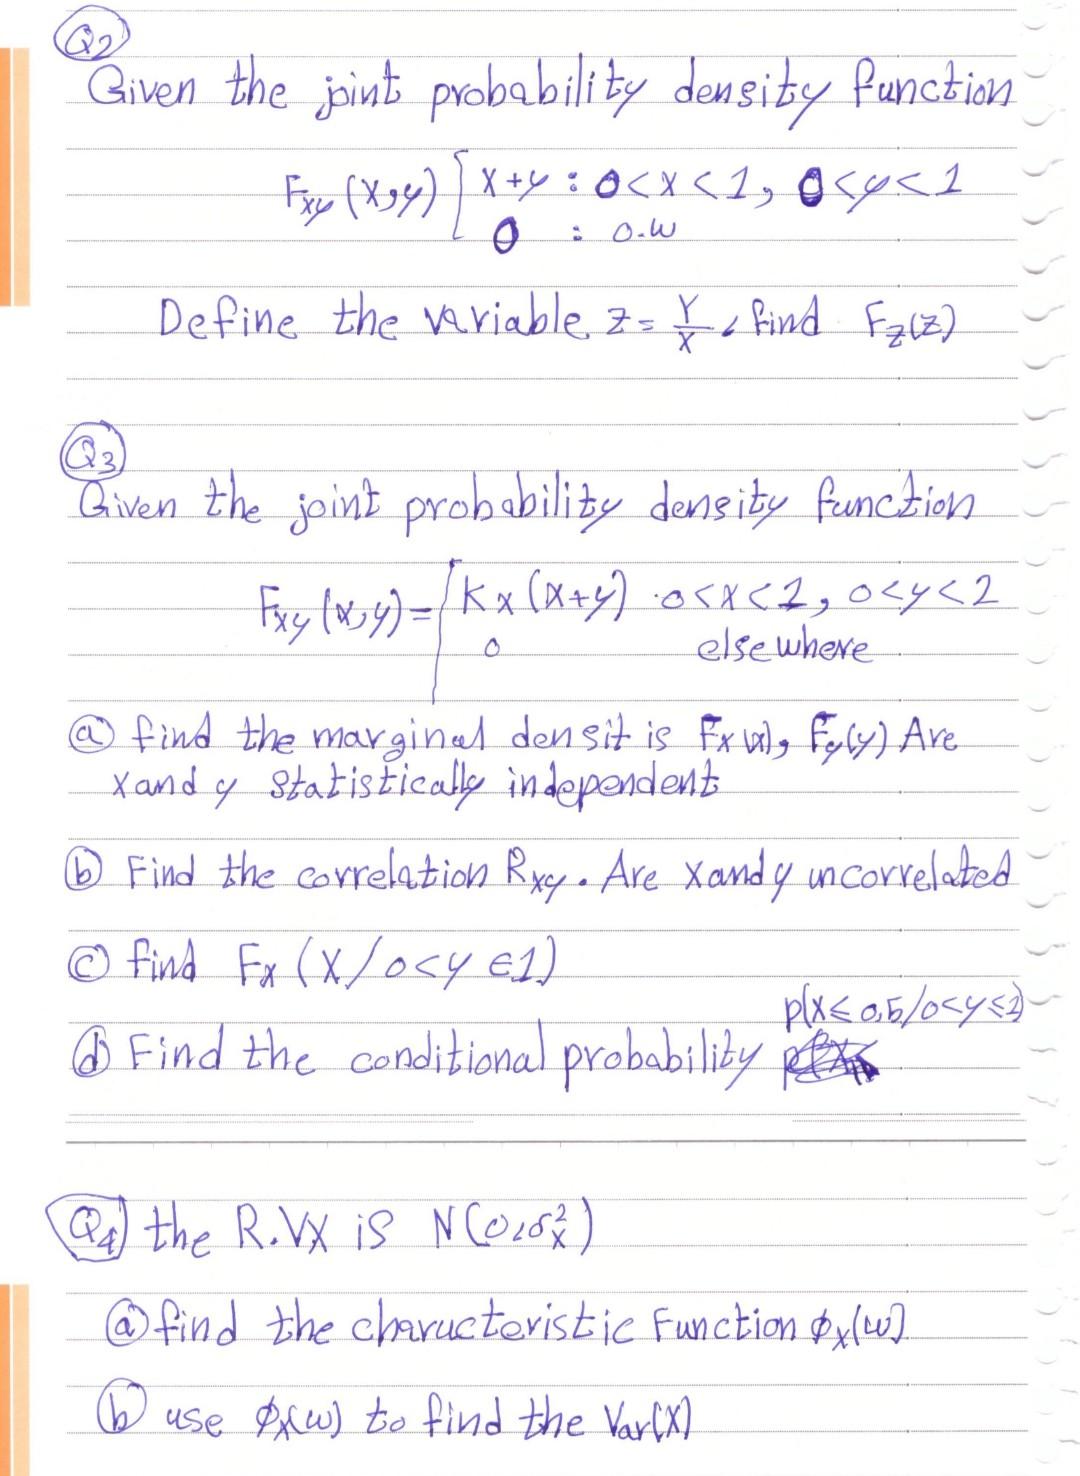 Q2
Given the joint probability density function
Fxy (x,y) { x+y : 0<x<1, 0<y<1
0 : o.w
Define the variable z = Y/X, find Fz(z)
Q3
Given the joint probability density function
Fxy (x,y) = { Kx (x+y) 0<x<1, 0<y<2
0 elsewhere
(a) find the marginal densit is Fx(x), Fy(y) Are
x and y statistically independent
(b) Find the correlation Rxy. Are x and y uncorrelated
(c) find Fx (x/0<y ∈1)
p(x≤0,5/0<y≤1)
(d) Find the conditional probability
Q4 the R.VX is N(0,σx²)
(a) find the charucteristic Function ϕx(w)
(b) use ϕx(w) to find the Var(X)